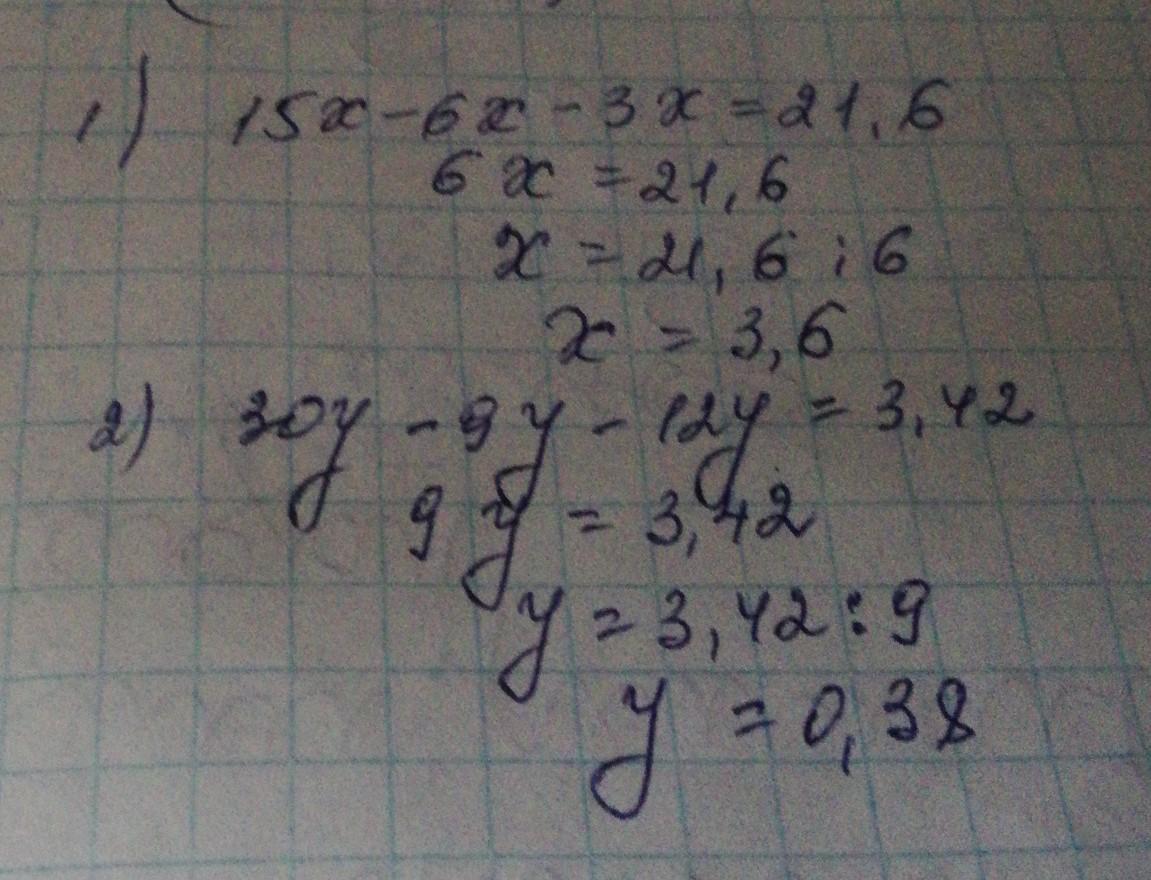 1) 15x - 6x - 3x = 21,6
6x = 21,6
x = 21,6 : 6
x = 3,6
2) 30y - 9y - 12y = 3,42
9y = 3,42
y = 3,42 : 9
y = 0,38